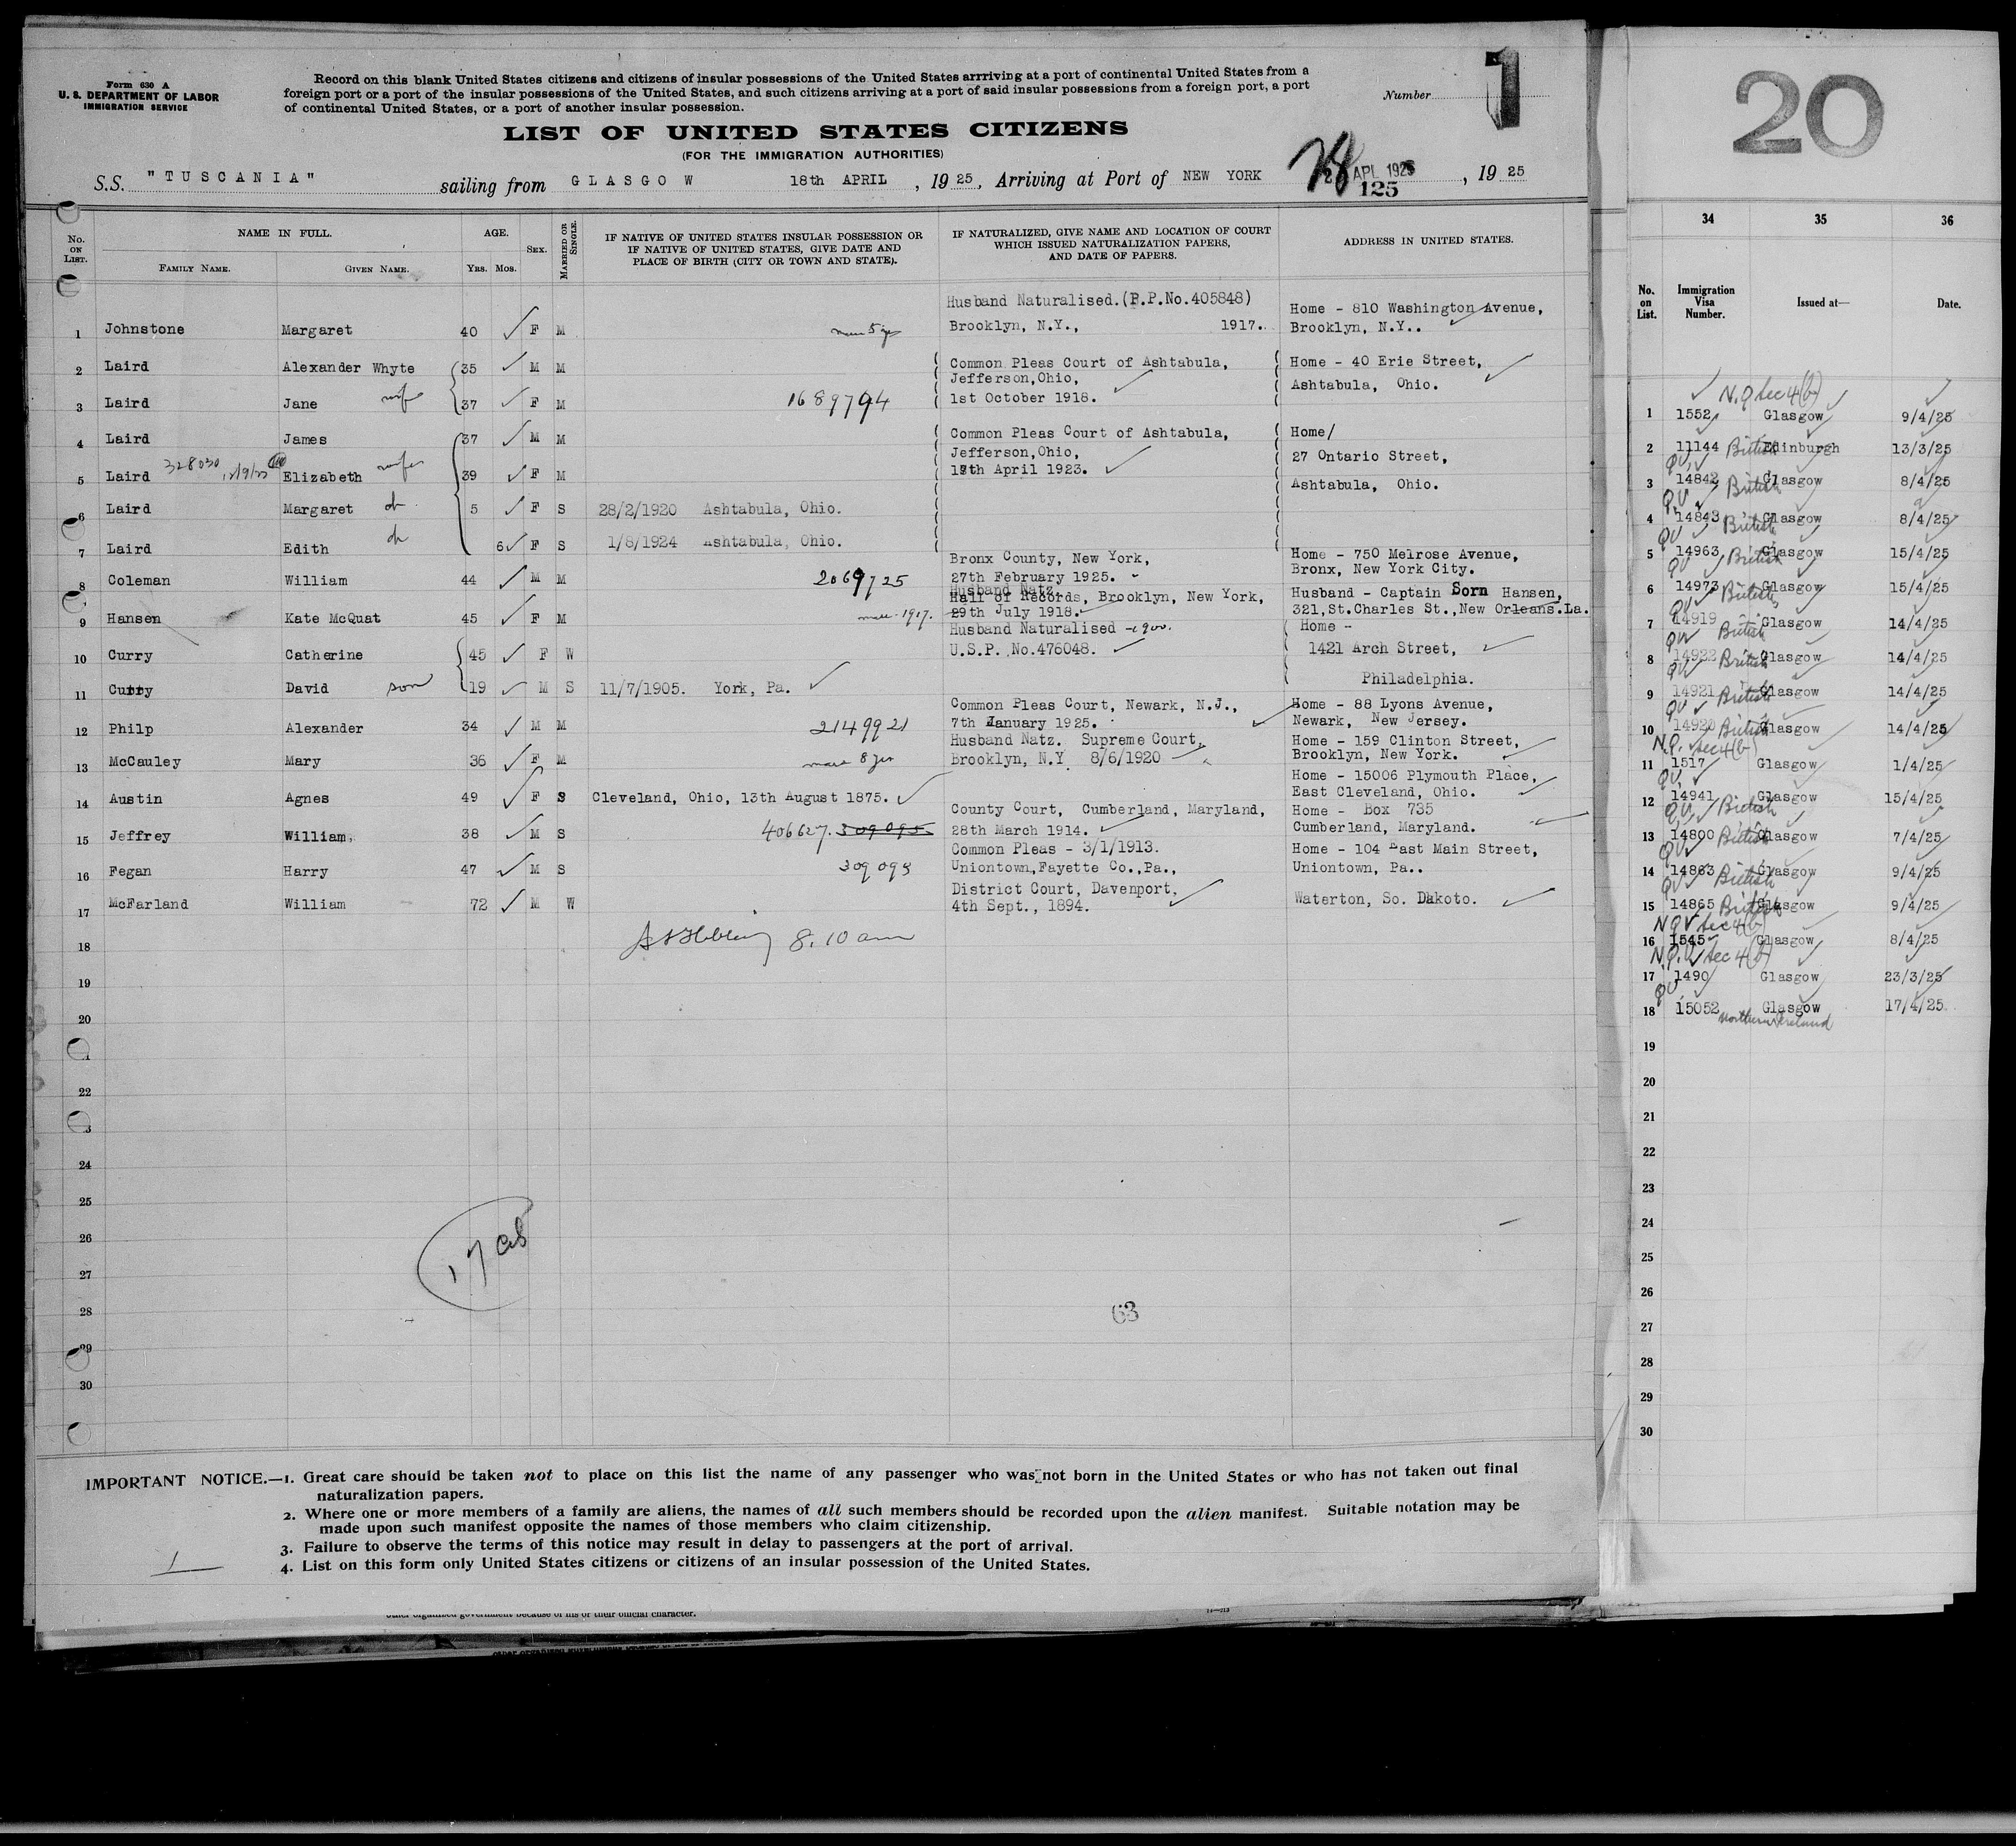 Form 630 A
U. S. DEPARTMENT OF LABOR
IMMIGRATION SERVICE
Record on this blank United States citizens and citizens of insular possessions of the United States arrriving at a port of continental United States from a
foreign port or a port of the insular possessions of the United States, and such citizens arriving at a port of said insular possessions from a foreign port, a port
of continental United States, or a port of another insular possession.
Number 1
LIST OF UNITED STATES CITIZENS
(FOR THE IMMIGRATION AUTHORITIES)
S.S. "TUSCANIA" sailing from GLASGOW 18th APRIL, 1925, Arriving at Port of NEW YORK APL 1925, 1925
125
No. ON LIST. NAME IN FULL. AGE. SEX. MARRIED OR SINGLE. IF NATIVE OF UNITED STATES INSULAR POSSESSION OR IF NATIVE OF UNITED STATES, GIVE DATE AND PLACE OF BIRTH (CITY OR TOWN AND STATE). IF NATURALIZED, GIVE NAME AND LOCATION OF COURT WHICH ISSUED NATURALIZATION PAPERS, AND DATE OF PAPERS. ADDRESS IN UNITED STATES.
FAMILY NAME. GIVEN NAME. YRS. MOS.
Husband Naturalised.(P.P.No.405848) Home - 810 Washington Avenue,
1 Johnstone Margaret 40 F M Brooklyn, N.Y., 1917. Brooklyn, N.Y..
2 Laird Alexander Whyte 35 M M Common Pleas Court of Ashtabula, Home - 40 Erie Street,
Jefferson,Ohio, Ashtabula, Ohio.
3 Laird Jane wife 37 F M 1689794 1st October 1918.
4 Laird James 37 M M Common Pleas Court of Ashtabula, Home/
Jefferson,Ohio, 27 Ontario Street,
5 Laird 328030 Elizabeth wife 39 F M April 1923.
Ashtabula, Ohio.
6 Laird Margaret ch 5 F S 28/2/1920 Ashtabula, Ohio.
7 Laird Edith ch 6 F S 1/8/1924 Ashtabula, Ohio.
Bronx County, New York, Home - 750 Melrose Avenue,
8 Coleman William 44 M M 2069725 27th February 1925. Bronx, New York City.
Husband Natz.
Hall of Records, Brooklyn, New York, Husband - Captain Sorn Hansen,
9 Hansen Kate McQuat 45 F M 1917. 29th July 1918. 321,St.Charles St.,New Orleans.La.
Husband Naturalised - 1900. Home -
10 Curry Catherine 45 F W U.S.P. No.476048. 1421 Arch Street,
11 Curry David son 19 M S 11/7/1905. York, Pa. Philadelphia.
Common Pleas Court, Newark, N.J., Home - 88 Lyons Avenue,
12 Philp Alexander 34 M M 2149921 7th January 1925. Newark, New Jersey.
Husband Natz. Supreme Court, Home - 159 Clinton Street,
13 McCauley Mary 36 F M 8 yrs Brooklyn, N.Y 8/6/1920 Brooklyn, New York.
Home - 15006 Plymouth Place,
14 Austin Agnes 49 F S Cleveland, Ohio, 13th August 1875. East Cleveland, Ohio.
County Court, Cumberland, Maryland, Home - Box 735
15 Jeffrey William. 38 M S 406627. 309095 28th March 1914. Cumberland, Maryland.
Common Pleas - 3/1/1913. Home - 104 East Main Street,
16 Fegan Harry 47 M S 309095 Uniontown,Fayette Co.,Pa., Uniontown, Pa..
District Court, Davenport,
17 McFarland William 72 M W 4th Sept., 1894. Waterton, So. Dakoto.
18 8.10 am
19
20
22
24
25
26
27
28
29
30
63
IMPORTANT NOTICE.—1. Great care should be taken not to place on this list the name of any passenger who was not born in the United States or who has not taken out final
naturalization papers.
2. Where one or more members of a family are aliens, the names of all such members should be recorded upon the alien manifest. Suitable notation may be
made upon such manifest opposite the names of those members who claim citizenship.
3. Failure to observe the terms of this notice may result in delay to passengers at the port of arrival.
4. List on this form only United States citizens or citizens of an insular possession of the United States.
1
other organized government because of his or their official character.
20
34 35 36
No. on List. Immigration Visa Number. Issued at— Date.
N.Q Sec 4(b)
1 1552 Glasgow 9/4/25
2 11144 British Edinburgh 13/3/25
QV
3 14842 British Glasgow 8/4/25
QV
4 14843 British Glasgow 8/4/25
QV
5 14963 British Glasgow 15/4/25
QV
6 14973 British Glasgow 15/4/25
QV
7 14919 British Glasgow 14/4/25
QV
8 14922 British Glasgow 14/4/25
QV
9 14921 British Glasgow 14/4/25
QV
10 14920 British Glasgow 14/4/25
N.Q. Sec 4(b)
11 1517 Glasgow 1/4/25
QV
12 14941 British Glasgow 15/4/25
QV
13 14800 British Glasgow 7/4/25
QV
14 14863 British Glasgow 9/4/25
QV
15 14865 British Glasgow 9/4/25
NQV Sec 4(b)
16 1545 Glasgow 8/4/25
N.Q.V Sec 4(b)
17 1490 Glasgow 23/3/25
QV
18 15052 Glasgow 17/4/25
Northern Ireland
19
20
21
22
23
24
25
26
27
28
29
30